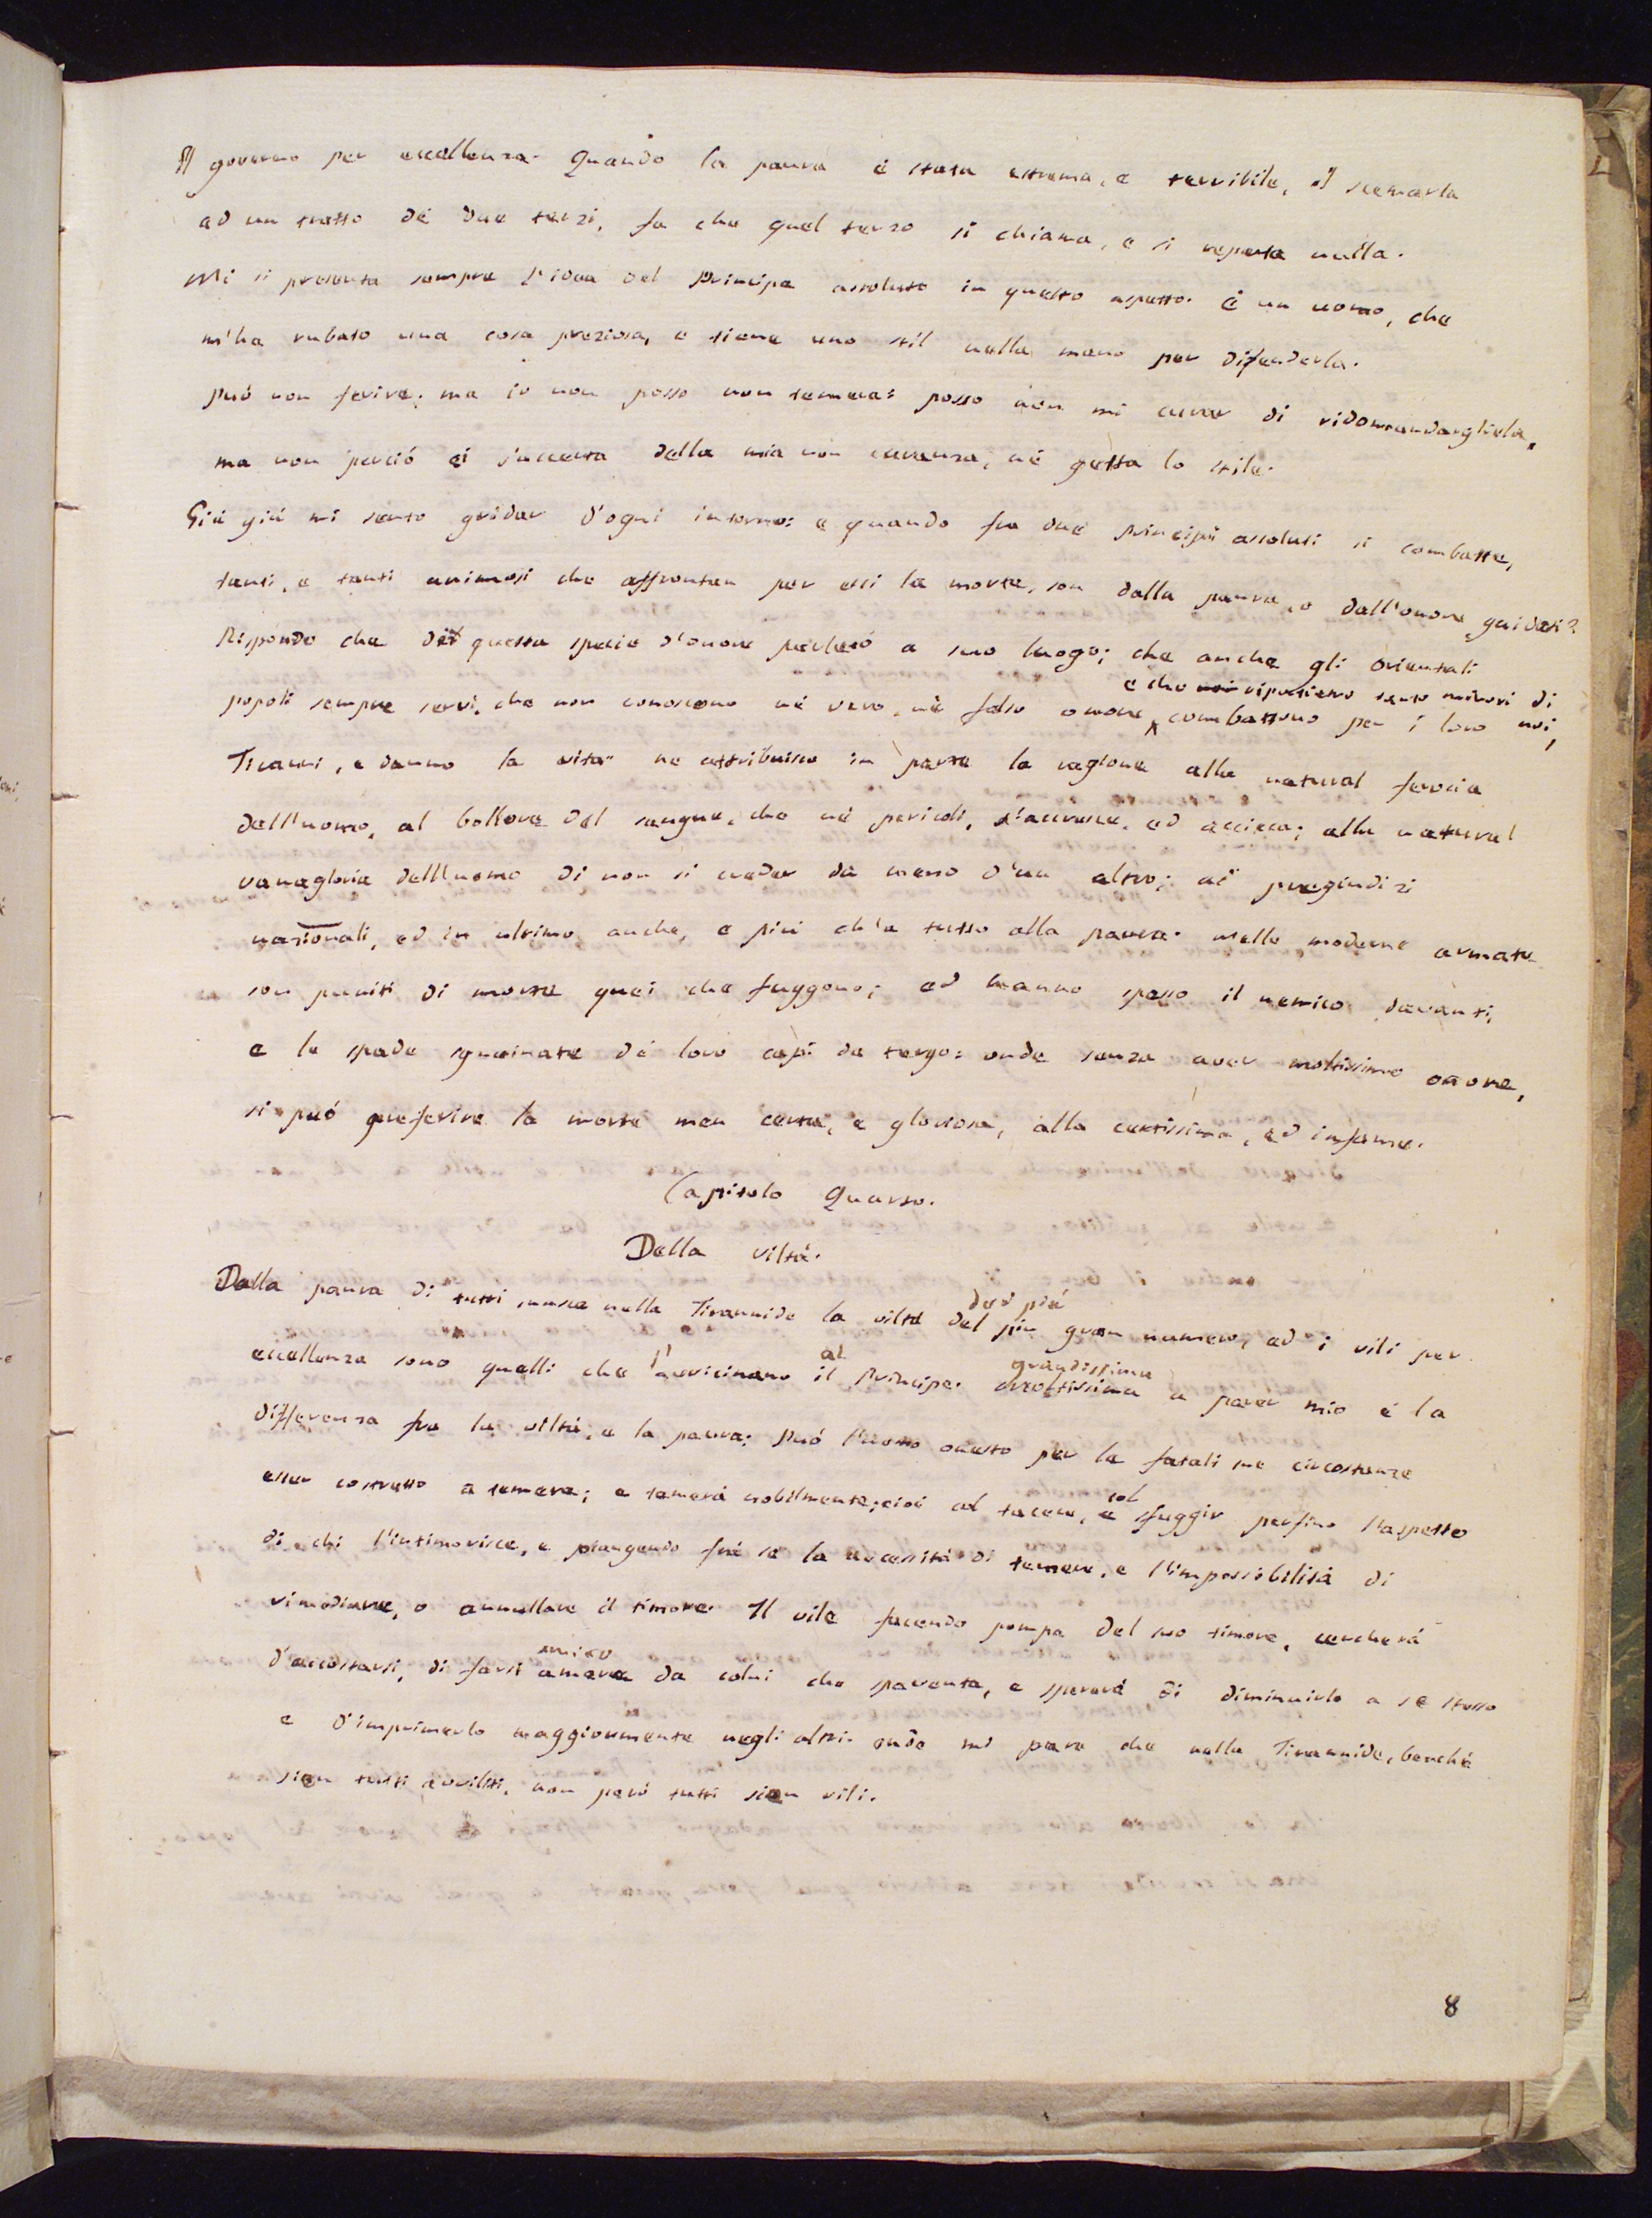 Il governo per eccellenza. Quando la paura è stata estrema, e terribile, il scemarla
ad un tratto dè due terzi, fa che quel terzo si chiama, e si reputa nulla.
Mi si presenta sempre l'idea del Principe assoluto in questo aspetto. è un uomo, che
m'ha rubato una cosa preziosa, e tiene uno stil nella mano per difenderla.
Può non ferire; ma io non posso non temere: posso non mi curar di ridomandargliela,
ma non perciò ei s'accerta della mia non curanza, nè getta lo stile.
Già già mi sento gridar d'ogni intorno: e quando fra due principi assoluti si combatte,
tanti, e tanti animosi che affrontan per essi la morte, son dalla paura, o dall'onore guidati?
Rispondo che di questa specie d'onore parlerò a suo luogo; che anche gli orientali
e che noi riputiamo tanto minori di
popoli sempre servi, che non conoscono nè vero, nè falso onore, combattono per i loro noi,
Tiranni, e danno la vita. ne attribuisco in parte la ragione alla natural ferocia
dell'uomo, al bollore del sangue, che nè pericoli, s'accresce, ed accieca; alla natural
vanagloria dell'uomo di non si creder da meno d'un altro; ai pregiudizi
nazionali, ed in ultimo anche, e più ch'a tutto alla paura. Nelle moderne armate
son puniti di morte quei che fuggono; ed hanno spesso il nemico davanti,
e le spade sguainate dè loro capi da tergo: onde senza aver moltissimo onore,
si può preferire la morte men certa, e gloriosa, alla certissima, ed infame.
Capitolo Quarto.
Della viltà.
del più
Dalla paura di tutti nasce nella Tirannide la viltà del più gran numero, ed i vili per
al grandissima
eccellenza sono quelli che s'avvicinano il Principe. Moltissima a parer mio è la
differenza fra la viltà, e la paura; Può l'uomo onesto per le fatali sue circostanze
col
esser costretto a temere; e temerà nobilmente; cioè col tacere, e fuggir persino l'aspetto
di chi l'intimorisce, e piangendo frà se la necessità di temere, e l'impossibilità di
rimediare, o annullare il timore. Il vile facendo pompa del suo timore, cercherà
amico
d'accostarsi, di farsi amare da colui che paventa, e spererà di diminuirlo a se stesso
e d'imprimerlo maggiormente negli altri. onde mi pare che nella Tirannide, benchè
sien tutti avviliti, non però tutti sien vili.
8